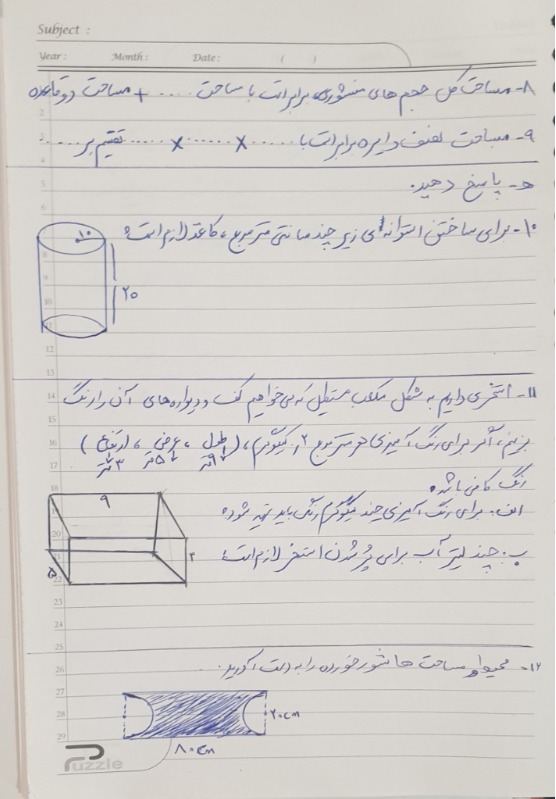 Subject :
Year : Month : Date : ( )
۸- مساحت کل حجم های منشوری برابر است با مساحت ..... + مساحت دو قاعده
۹- مساحت نصف دایره برابر است با ...... × ...... × ...... تقسیم بر .....
ه- پاسخ دهید.
۱۰- برای ساختن استوانه ای زیر چند سانتی متر مربع، کاغذ لازم است؟
۱۰
۲۰
۱۱- استخری داریم به شکل مکعب مستطیل که می خواهیم کف و دیواره های آن را رنگ
بزنیم، اگر برای رنگ آمیزی هر متر مربع ۲ کیلوگرم، (طول ۹ متر، عرض ۵ متر، ارتفاع ۳ متر)
رنگ کافی باشد
الف: برای رنگ آمیزی چند کیلوگرم رنگ باید تهیه شود
ب: چند لیتر آب برای پر شدن استخر لازم است؟
۹
۵
۳
۱۲- محیط و مساحت هاشور خورده را به دست آورید.
۲۰cm
۸۰cm
Puzzle